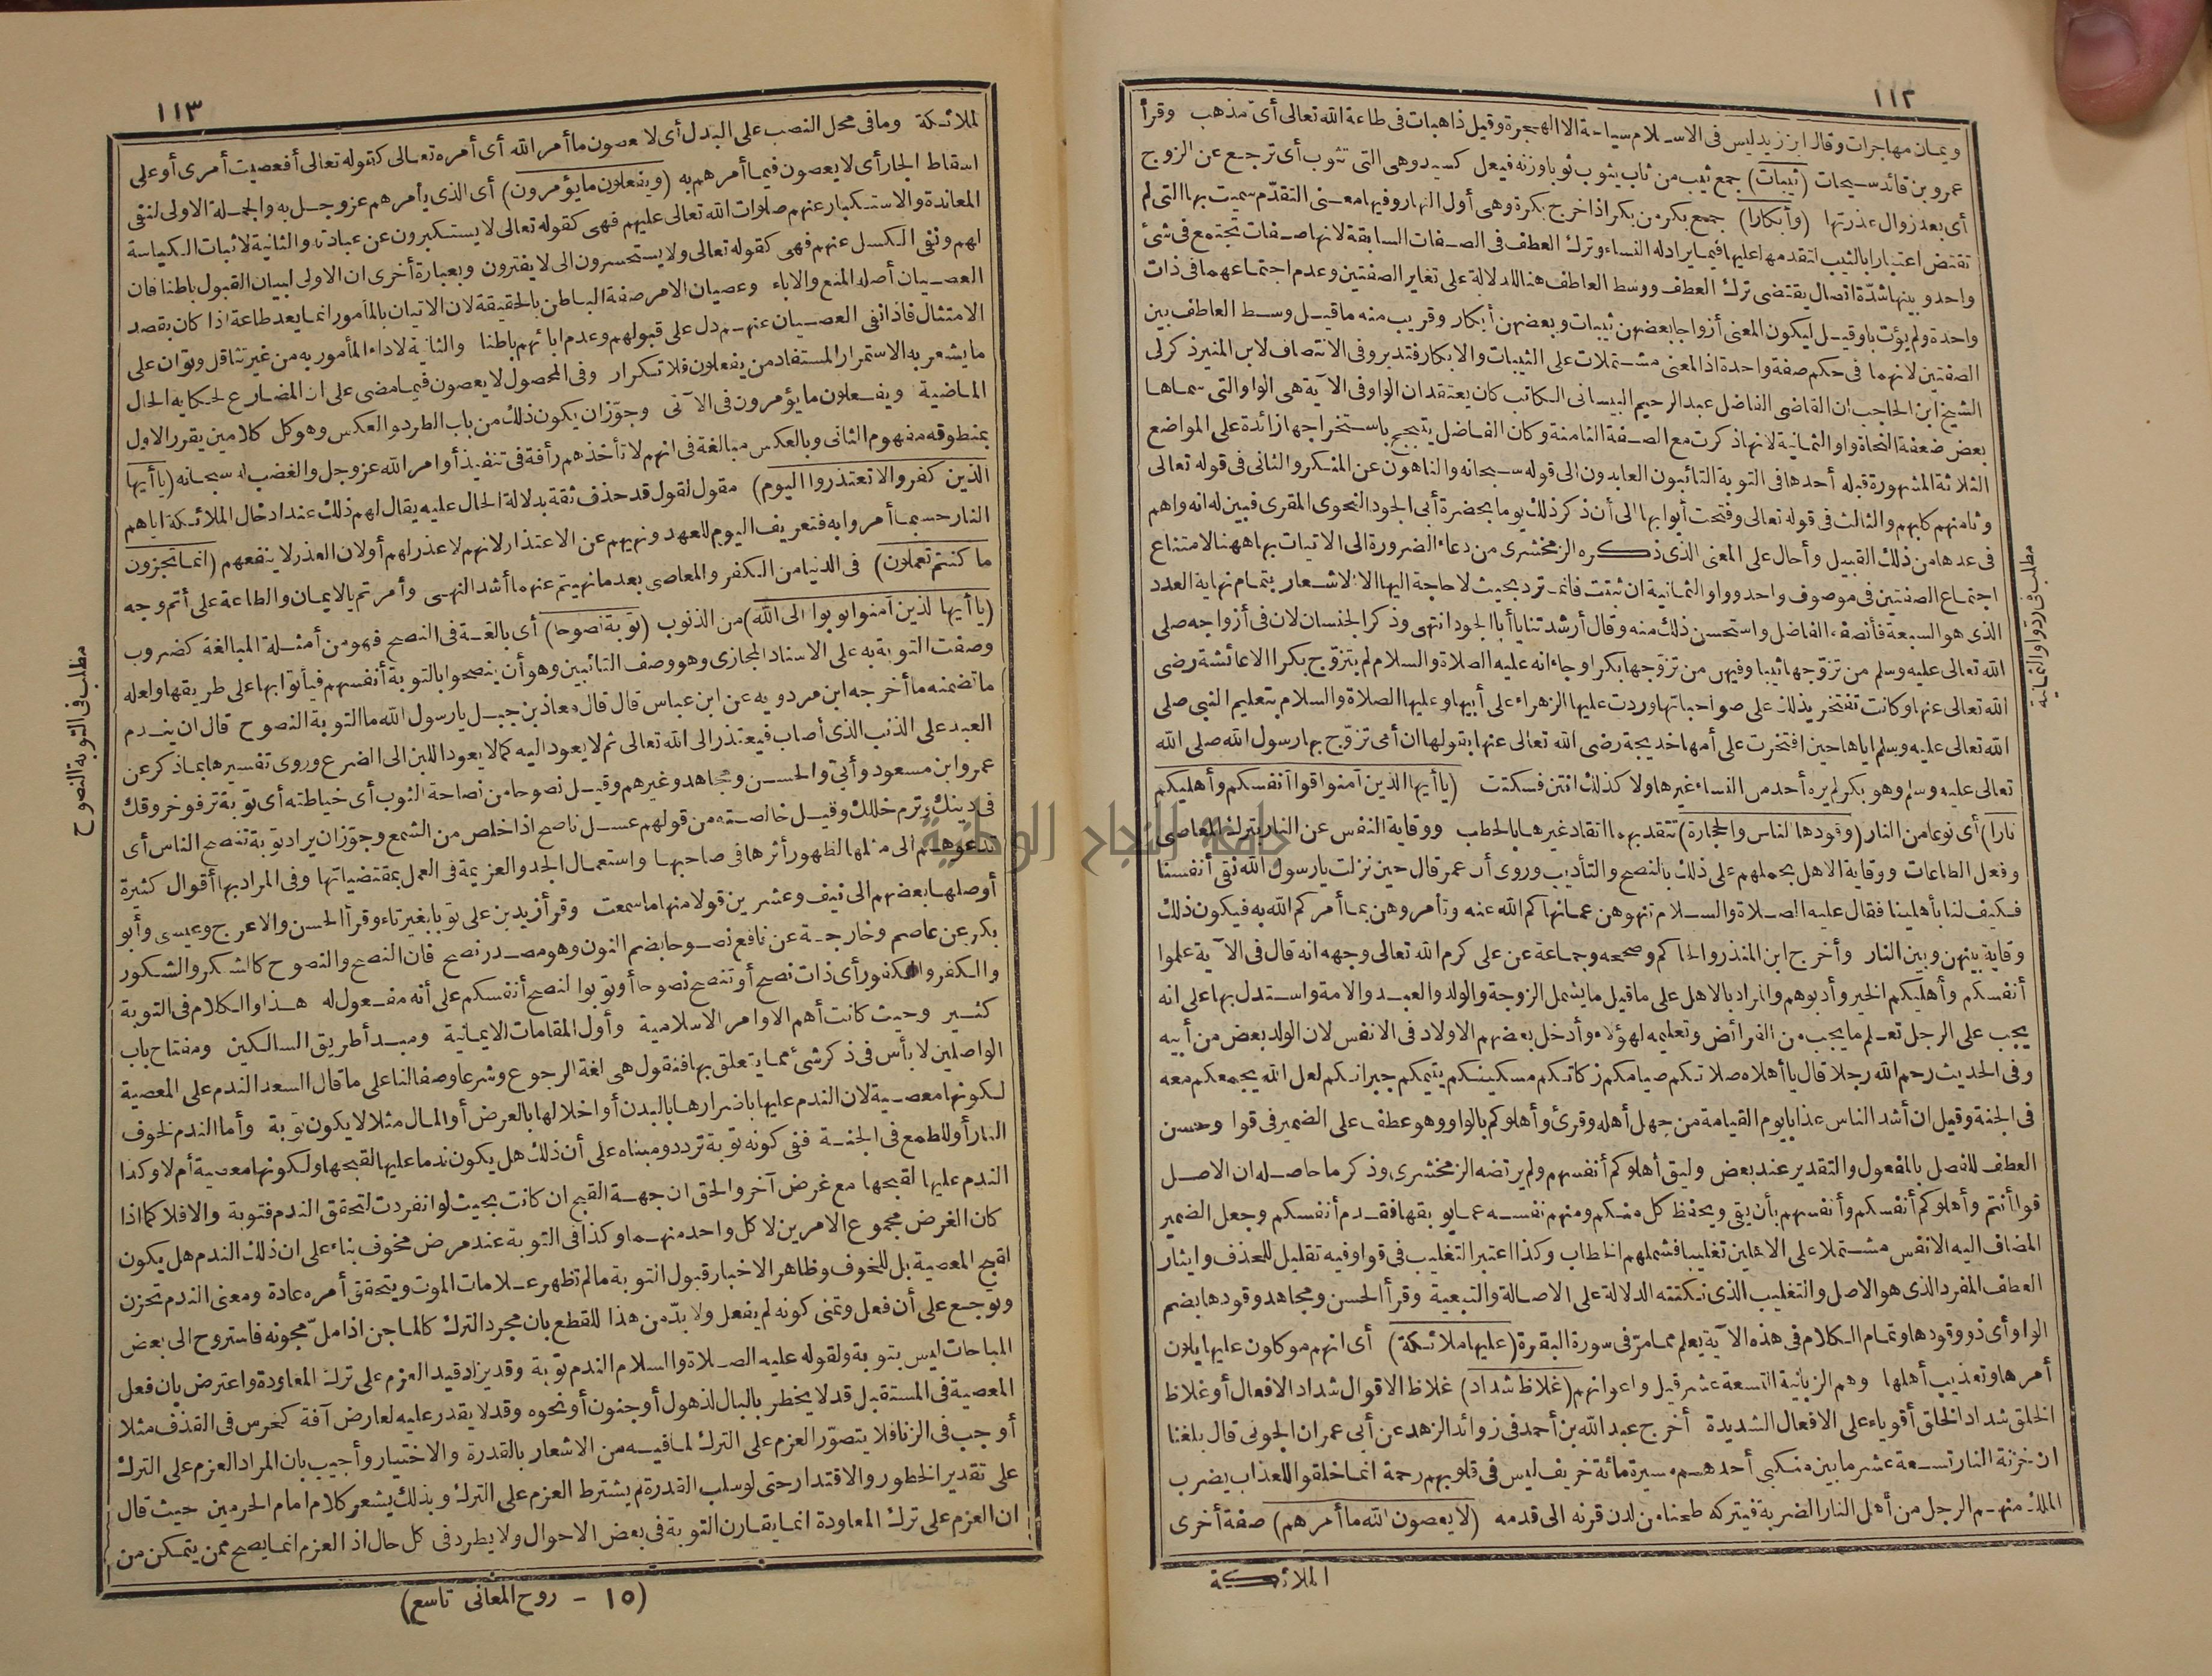 ١١٢
ويمان مهاجرات وقال ابن زيد ليس فى الاسلام سياحة الا الهجرة وقيل ذاهبات فى طاعة الله تعالى أىّ مذهب وقرأ
عمرو بن قائد سيحات (ثيبات) جمع ثيب من ثاب يثوب ثوبا وزنه فيعل كسيد وهى التى تثوب أى ترجع عن الزوج
أى بعد زوال عذرتها (وأبكارا) جمع بكر من بكر اذا خرج بكرة وهى أول النهار وفيها معنى التقدّم سميت بها التى لم
تفتض اعتبارا بالثيب لتقدمها عليها فيما يراد له النساء وترك العطف فى الصفات السابقة لانها صفات تجتمع فى شئ
واحد وبينها شدّة اتصال يقتضى ترك العطف ووسط العاطف هنا للدلالة على تغاير الصفتين وعدم اجتماعهما فى ذات
واحدة ولم يؤت باو قيل ليكون المعنى أزواجا بعضهن ثيبات وبعضهن أبكار وقريب منه ما قيل وسط العاطف بين
الصفتين لانهما فى حكم صفة واحدة اذ المعنى مشتملات على الثيبات والابكار فتدبر وفى الانتصاف لابن المنير ذكر لى
الشيخ ابن الحاجب ان القاضى الفاضل عبد الرحيم البيسانى الكاتب كان يعتقد ان الواو فى الآية هى الواو التى سماها
بعض ضعفة النحاة واو الثمانية لانها ذكرت مع الصفة الثامنة وكان الفاضل يتبجح باستخراجها زائدة على المواضع
الثلاثة المشهورة قبله أحدها فى التوبة التائبون العابدون الى قوله سبحانه والناهون عن المنكر والثانى فى قوله تعالى
وثامنهم كلبهم والثالث فى قوله تعالى وفتحت أبوابها الى أن ذكر ذلك يوما بحضرة أبى الجود النحوى المقرى فبين له انه واهم
فى عدها من ذلك القبيل وأحال على المعنى الذى ذكره الزمخشرى من دعاء الضرورة الى الاتيان بها ههنا لامتناع
اجتماع الصفتين فى موصوف واحد وواو الثمانية ان ثبتت فانما ترد بحيث لا حاجة اليها الا الاشعار بتمام نهاية العدد
الذى هو السبعة فأنصفه الفاضل واستحسن ذلك منه وقال أرشدتنا يا أبا الجود انتهى وذكر الجنسان لان فى أزواجه صلى
الله تعالى عليه وسلم من تزوّجها ثيبا وفيهن من تزوّجها بكرا وجاء انه عليه الصلاة والسلام لم يتزوّج بكرا الا عائشة رضى
الله تعالى عنها وكانت تفتخر بذلك على صواحباتها وردت عليها الزهراء على أبيها وعليها الصلاة والسلام بتعليم النبى صلى
الله تعالى عليه وسلم اياها حين افتخرت على أمها خديجة رضى الله تعالى عنها بقولها ان أمى تزوّج بها رسول الله صلى الله
تعالى عليه وسلم وهو بكر لم يره أحد من النساء غيرها ولا كذلك انتن فسكتت (يا أيها الذين آمنوا قوا أنفسكم وأهليكم
نارا) أى نوعا من النار (وقودها الناس والحجارة) تتقد بهما اتقاد غيرها بالحطب ووقاية النفس عن النار بترك المعاصى
وفعل الطاعات ووقاية الاهل بحملهم على ذلك بالنصح والتأديب وروى أن عمر قال حين نزلت يا رسول الله نقى أنفسنا
فكيف لنا بأهلينا فقال عليه الصلاة والسلام تنهوهن عما نهاكم الله عنه وتأمروهن بما أمركم الله به فيكون ذلك
وقاية بينهن وبين النار وأخرج ابن المنذر والحاكم وصححه وجماعة عن على كرم الله تعالى وجهه انه قال فى الآية علموا
أنفسكم وأهليكم الخير وأدبوهم والمراد بالاهل على ما قيل ما يشمل الزوجة والولد والعبد والامة واستدل بها على انه
يجب على الرجل تعلم ما يجب من الفرائض وتعليمه لهؤلاء وأدخل بعضهم الاولاد فى الانفس لان الولد بعض من أبيه
وفى الحديث رحم الله رجلا قال يا أهلاه صلاتكم صيامكم زكاتكم مسكينكم يتيمكم جيرانكم لعل الله يجمعكم معه
فى الجنة وقيل ان أشد الناس عذابا يوم القيامة من جهل أهله وقرئ وأهلوكم بالواو وهو عطف على الضمير فى قوا وحسن
العطف للفصل بالمفعول والتقدير عند بعض وليق أهلوكم أنفسهم ولم يرتضه الزمخشرى وذكر ما حاصله ان الاصل
قوا أنتم وأهلوكم أنفسكم وأنفسهم بأن يقى ويحفظ كل منكم ومنهم نفسه عما يوبقها فقدم أنفسكم وجعل الضمير
المضاف اليه الانفس مشتملا على الاهلين تغليبا فشملهم الخطاب وكذا اعتبر التغليب فى قوا وفيه تقليل للحذف وايثار
العطف المفرد الذى هو الاصل والتغليب الذى نكتته الدلالة على الاصالة والتبعية وقرأ الحسن ومجاهد وقودها بضم
الواو أى ذو وقودها وتمام الكلام فى هذه الآية يعلم مما مرّ فى سورة البقرة (عليها ملائكة) أى انهم موكلون عليها يلون
أمرها وتعذيب أهلها وهم الزبانية التسعة عشر قيل واعوانهم (غلاظ شداد) غلاظ الاقوال شداد الافعال أو غلاظ
الخلق شداد الخلق أقوياء على الافعال الشديدة أخرج عبد الله بن أحمد فى زوائد الزهد عن أبى عمران الجونى قال بلغنا
ان خزنة النار تسعة عشر ما بين منكبى أحدهم مسيرة مائة خريف ليس فى قلوبهم رحمة انما خلقوا للعذاب يضرب
الملك منهم الرجل من أهل النار الضربة فيتركه طحنا من لدن قرنه الى قدمه (لا يعصون الله ما أمرهم) صفة أخرى
الملائكة
مطلب فى رد واو الثمانية
١١٣
لملائكة وما فى محل النصب على البدل أى لا يعصون ما أمر الله أى أمره تعالى كقوله تعالى أفعصيت أمرى أو على
اسقاط الجار أى لا يعصون فيما أمرهم به (ويفعلون ما يؤمرون) أى الذى يأمرهم عز وجل به والجملة الاولى لنفى
المعاندة والاستكبار عنهم صلوات الله تعالى عليهم فهى كقوله تعالى لا يستكبرون عن عبادته والثانية لاثبات الكياسة
لهم ونفى الكسل عنهم فهى كقوله تعالى ولا يستحسرون الى لا يفترون وبعبارة أخرى ان الاولى لبيان القبول باطنا فان
العصيان أصله المنع والاباء وعصيان الامر صفة الباطن بالحقيقة لان الاتيان بالمأمور انما يعد طاعة اذا كان بقصد
الامتثال فاذا نفى العصيان عنهم دل على قبولهم وعدم ابائهم باطنا والثانية لاداء المأمور به من غير تثاقل وتوان على
ما يشعر به الاستمرار المستفاد من يفعلون فلا تكرار وفى المحصول لا يعصون فيما مضى على ان المضارع لحكاية الحال
الماضية ويفعلون ما يؤمرون فى الآتى وجوّز ان يكون ذلك من باب الطرد والعكس وهو كل كلامين يقرر الاول
بمنطوقه مفهوم الثانى وبالعكس مبالغة فى انهم لا تأخذهم رأفة فى تنفيذ أوامر الله عز وجل والغضب له سبحانه (يا أيها
الذين كفروا لا تعتذروا اليوم) مقول لقول قد حذف ثقة بدلالة الحال عليه يقال لهم ذلك عند ادخال الملائكة اياهم
النار حسبما أمروا به فتعريف اليوم للعهد ونهيهم عن الاعتذار لانهم لا عذر لهم أو لان العذر لا ينفعهم (انما تجزون
ما كنتم تعملون) فى الدنيا من الكفر والمعاصى بعد ما نهيتم عنهما أشد النهى وأمرتم بالايمان والطاعة على أتم وجه
(يا أيها الذين آمنوا توبوا الى الله) من الذنوب (توبة نصوحا) أى بالغة فى النصح فهو من أمثلة المبالغة كضروب
وصفت التوبة به على الاسناد المجازى وهو وصف التائبين وهو أن ينصحوا بالتوبة أنفسهم فيأتوا بها على طريقها ولعله
ما تضمنه ما أخرجه ابن مردويه عن ابن عباس قال قال معاذ بن جبل يا رسول الله ما التوبة النصوح قال ان يندم
العبد على الذنب الذى أصاب فيعتذر الى الله تعالى ثم لا يعود اليه كما لا يعود اللبن الى الضرع وروى تفسيرها بما ذكر عن
عمر وابن مسعود وأبىّ والحسن ومجاهد وغيرهم وقيل نصوحا من نصاحة الثوب أى خياطته أى توبة ترفو خروقك
فى دينك وترم خللك وقيل خالصة من قولهم عسل ناصح اذا خلص من الشمع وجوّز ان يراد توبة تنصح الناس أى
تدعوهم الى مثلها لظهور أثرها فى صاحبها واستعمال الجد والعزيمة فى العمل بمقتضياتها وفى المراد بها أقوال كثيرة
أوصلها بعضهم الى نيف وعشرين قولا منها ما سمعت وقرأ زيد بن على توبا بغير تاء وقرأ الحسن والاعرج وعيسى وأبو
بكر عن عاصم وخارجة عن نافع نصوحا بضم النون وهو مصدر نصح فان النصح والنصوح كالشكر والشكور
والكفر والكفور أى ذات نصح أو تنصح نصوحا أو توبوا لنصح أنفسكم على أنه مفعول له هذا والكلام فى التوبة
كثير وحيث كانت أهم الاوامر الاسلامية وأول المقامات الايمانية ومبدأ طريق السالكين ومفتاح باب
الواصلين لا بأس فى ذكر شئ مما يتعلق بها فنقول هى لغة الرجوع وشرعا وصفا لنا على ما قال السعد الندم على المعصية
لكونها معصية لان الندم عليها باضرارها بالبدن أو اخلالها بالعرض أو المال مثلا لا يكون توبة وأما الندم لخوف
النار أو للطمع فى الجنة ففى كونه توبة تردد ومبناه على أن ذلك هل يكون ندما عليها لقبحها ولكونها معصية أم لا وكذا
الندم عليها لقبحها مع غرض آخر والحق ان جهة القبح ان كانت بحيث لو انفردت لتحقق الندم فتوبة والا فلا كما اذا
كان الغرض مجموع الامرين لا كل واحد منهما وكذا فى التوبة عند مرض مخوف بناء على ان ذلك الندم هل يكون
لقبح المعصية بل للخوف وظاهر الاخبار قبول التوبة ما لم تظهر علامات الموت ويتحقق أمره عادة ومعنى الندم تحزن
وتوجع على أن فعل وتمنى كونه لم يفعل ولا بدّ من هذا للقطع بان مجرد الترك كالماجن اذا ملّ مجونه فاستروح الى بعض
المباحات ليس بتوبة ولقوله عليه الصلاة والسلام الندم توبة وقد يزاد قيد العزم على ترك المعاودة واعترض بان فعل
المعصية فى المستقبل قد لا يخطر بالبال لذهول أو جنون أو نحوه وقد لا يقدر عليه لعارض آفة كخرس فى القذف مثلا
أو جب فى الزنا فلا يتصوّر العزم على الترك لما فيه من الاشعار بالقدرة والاختيار وأجيب بان المراد العزم على الترك
على تقدير الخطور والاقتدار حتى لو سلب القدرة لم يشترط العزم على الترك وبذلك يشعر كلام امام الحرمين حيث قال
ان العزم على ترك المعاودة انما يقارن التوبة فى بعض الاحوال ولا يطرد فى كل حال اذ العزم انما يصح ممن يتمكن من
(١٥ - روح المعانى تاسع)
مطلب فى التوبة النصوح
جامعة النجاح الوطنية